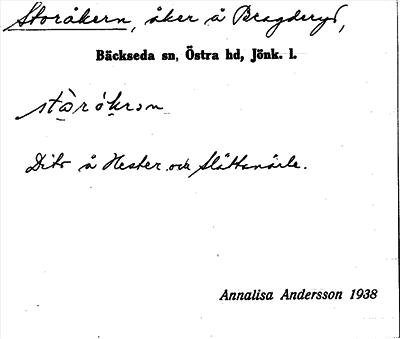 Storåkern, åker å Bragderyd,
Bäckseda sn, Östra hd, Jönk. l.
Dito å Hester och
Annalisa Andersson 1938